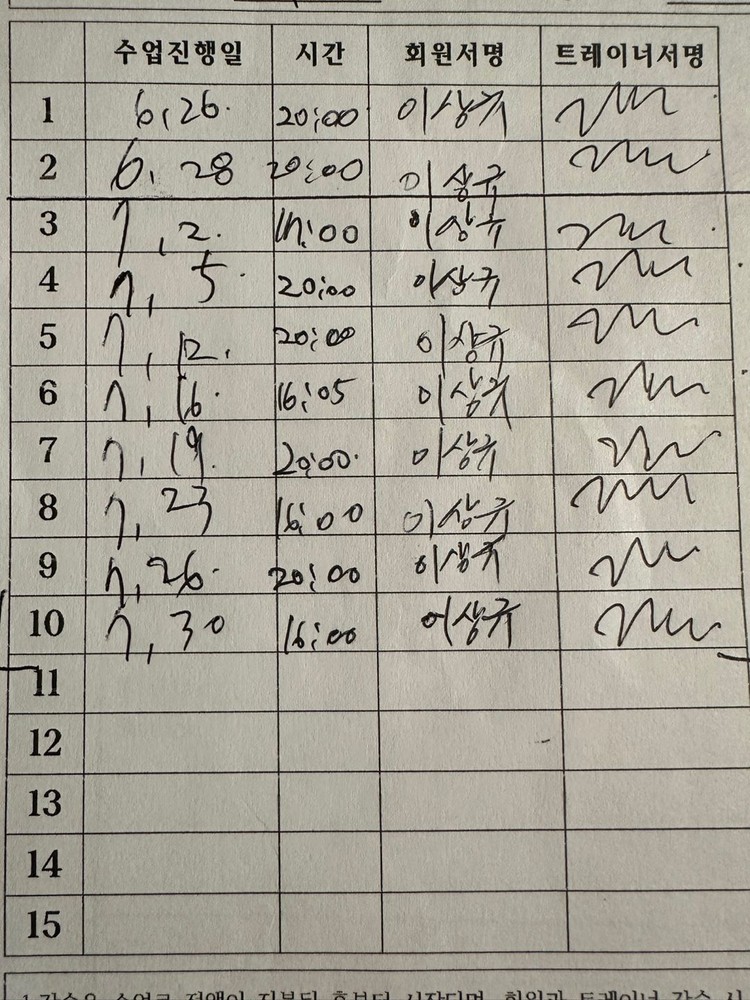 수업진행일 시간 회원서명 트레이너서명
1 6,26. 20:00 이상규
2 6, 28 20:00 이상규
3 7,2. 17:00 이상규
4 7, 5. 20:00 이상규
5 7,12. 20:00 이상규
6 7,16. 16:05 이상규
7 7,19. 20:00. 이상규
8 7, 23 16:00 이상규
9 7,26. 20:00 이상규
10 7,30 16:00 이상규
11
12
13
14
15